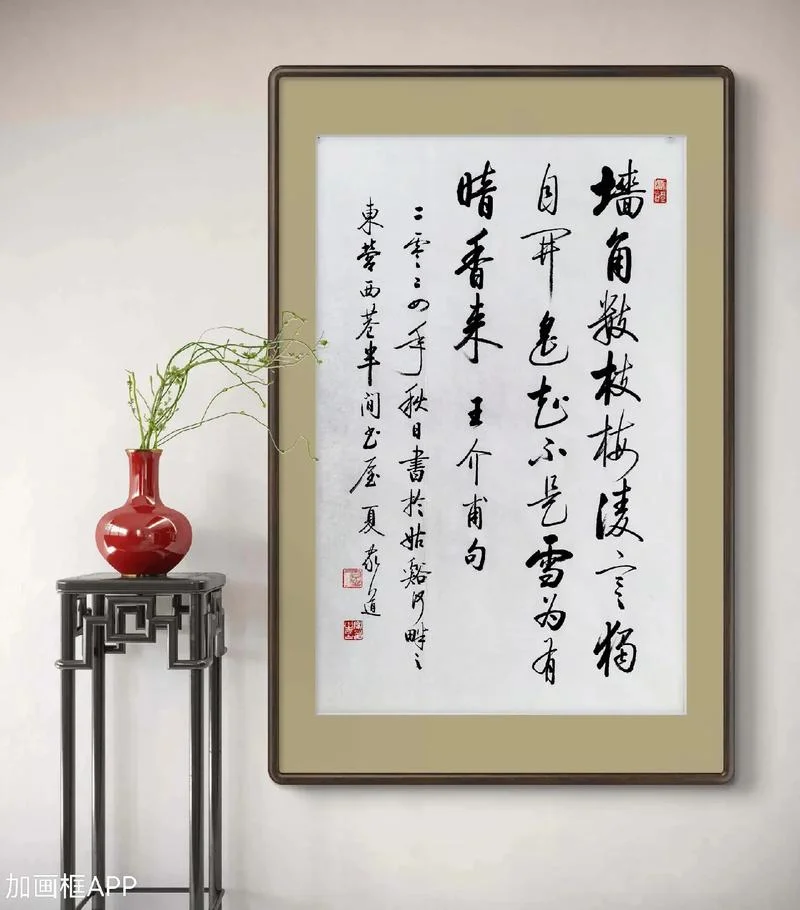 墙角数枝梅凌寒独
自开遥知不是雪为有
暗香来 王介甫句
二零二四年秋日書於姑谿河畔之
東营西巷半间书屋夏家道
加画框APP